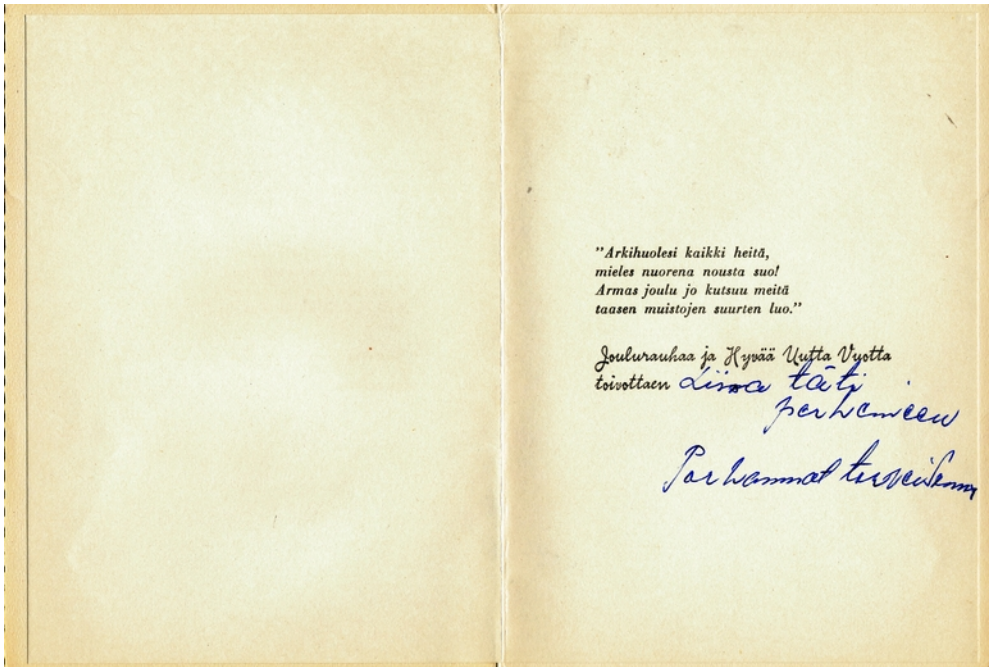 "Arkihuolesi kaikki heitä,
mieles nuorena nousta suo!
Armas joulu jo kutsuu meitä
taasen muistojen suurten luo."
Joulurauhaa ja Hyvää Uutta Vuotta
toivottaen Liisa täti
perheineen
Parhammat